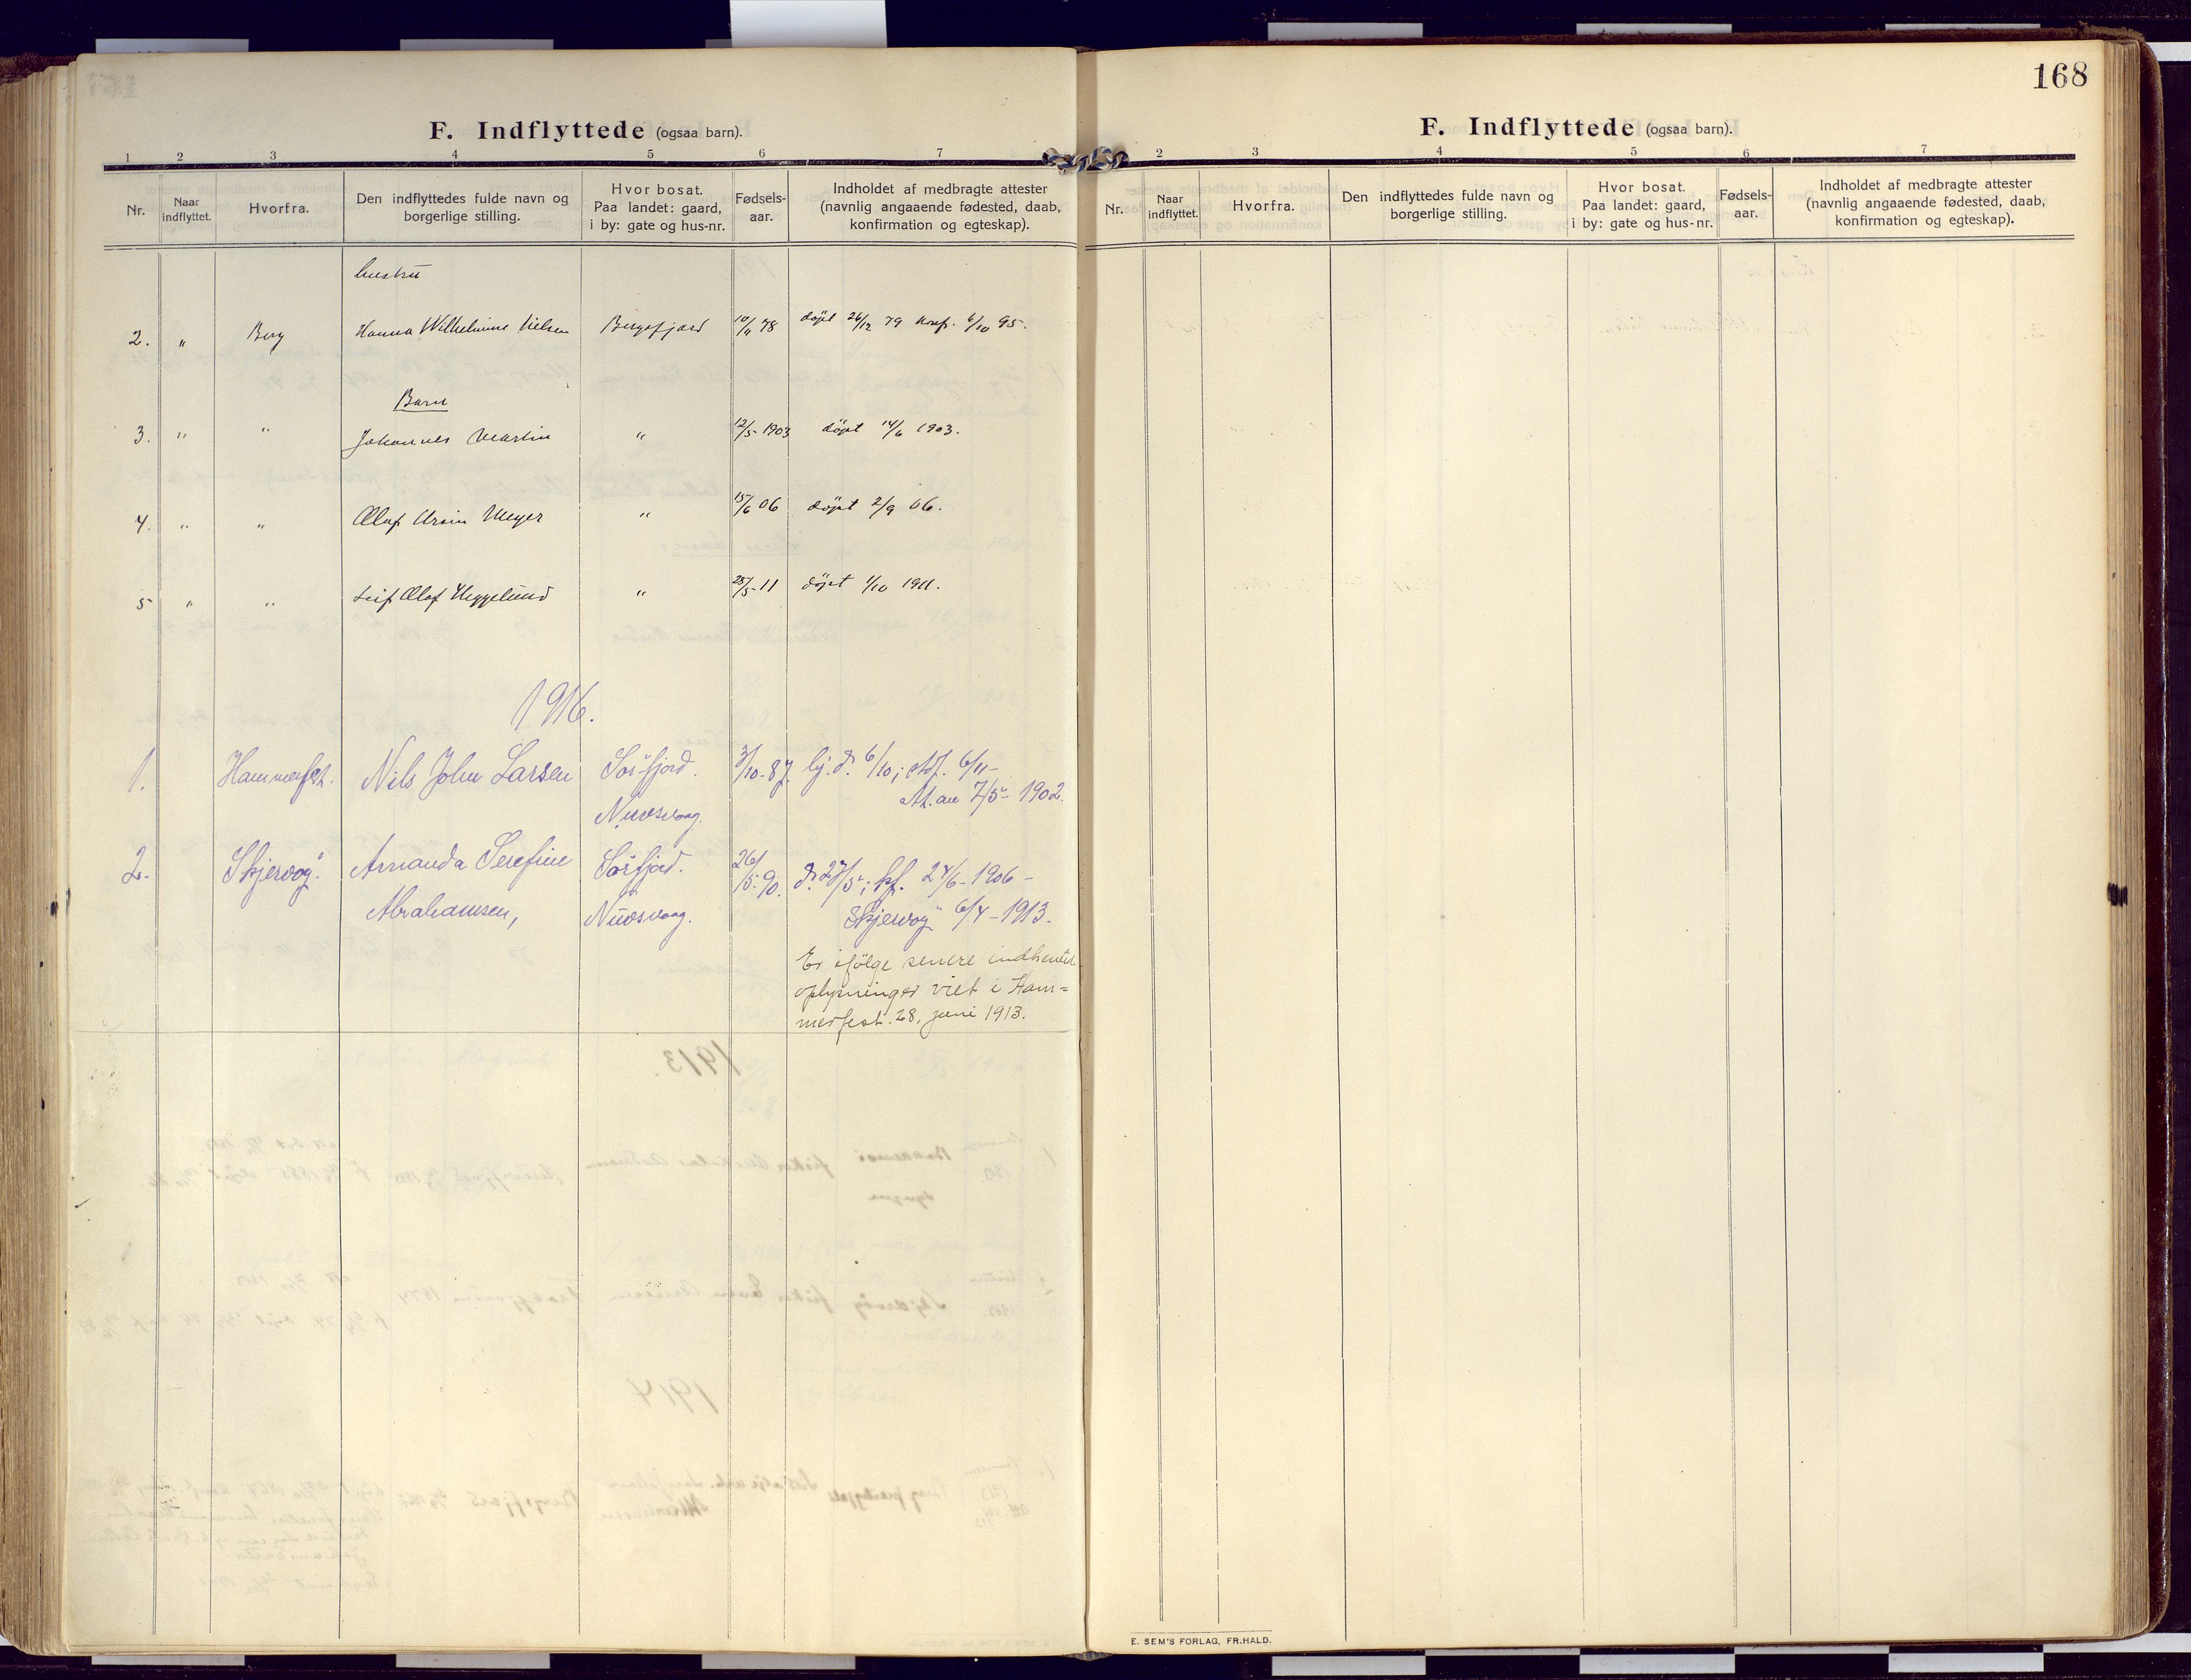 168
F. Indflyttede (ogsaa barn).
1 2 3 4 5 6 7
Nr.
Naar indflyttet.
Hvorfra.
Den indflyttedes fulde navn og borgerlige stilling.
Hvor bosat. Paa landet: gaard, i by: gate og hus-nr.
Fødsels-aar.
Indholdet af medbragte attester (navnlig angaaende fødested, daab, konfirmation og egteskap).
hustru
2. " Berg Hanna Wilhelmine Nielsen Bergsfjord 10/11 78 döpt 26/12 79 konf. 6/10 95.
Barn
3. " " Johannes Martin " 12/5 1903 döpt 14/6 1903.
4. " " Olaf Ursin Meyer " 15/6 06 döpt 2/9 06.
5 " " Leif Olaf Heggelund " 25/5 11 döpt 1/10 1911.
1916.
1. Hammerfest. Nils John Larsen Sörfjord. 3/10-87. hj. d. 6/10; stdf. 6/11-
Nuvsvaag. 7/5- 1902.
2. Skjervöy. Amanda Serefine Sörfjord. 26/5-90. d. 27/5; kf. 24/6-1906-
Abrahamsen, Nuvsvaag. Skjervöy 6/4-1913.
Er ifölge senere indhentede
oplysninger viet i Ham=
merfest. 28, juni 1913.
F. Indflyttede (ogsaa barn).
2 3 4 5 6 7
Nr.
Naar indflyttet.
Hvorfra.
Den indflyttedes fulde navn og borgerlige stilling.
Hvor bosat. Paa landet: gaard, i by: gate og hus-nr.
Fødsels-aar.
Indholdet af medbragte attester (navnlig angaaende fødested, daab, konfirmation og egteskap).
E. SEM'S FORLAG, FR.HALD.